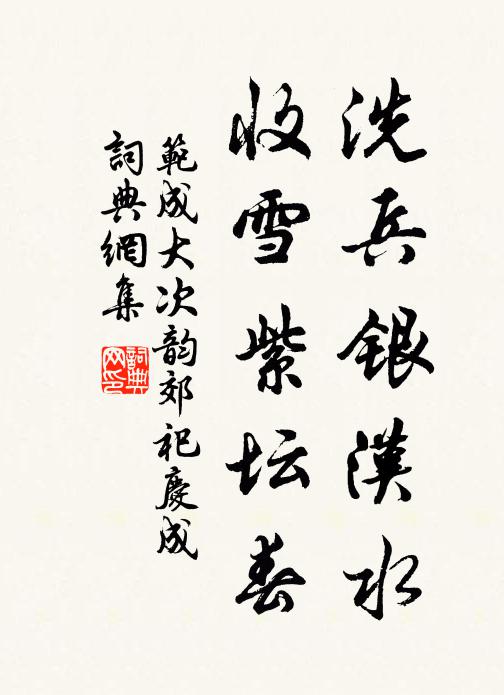 洗兵銀漢水
收雪紫坛春
範成大次韵郊祀慶成
詞典網集
詞典网印